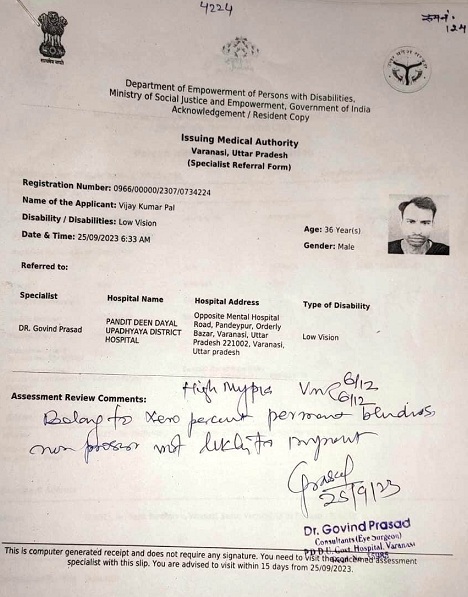 4224
क्रमसं.
124
Department of Empowerment of Persons with Disabilities,
Ministry of Social Justice and Empowerment, Government of India
Acknowledgement / Resident Copy
Issuing Medical Authority
Varanasi, Uttar Pradesh
(Specialist Referral Form)
Registration Number: 0966/00000/2307/0734224
Name of the Applicant: Vijay Kumar Pal
Disability / Disabilities: Low Vision
Date & Time: 25/09/2023 6:33 AM
Age: 36 Year(s)
Gender: Male
Referred to:
Specialist Hospital Name Hospital Address Type of Disability
DR. Govind Prasad PANDIT DEEN DAYAL UPADHYAYA DISTRICT HOSPITAL Opposite Mental Hospital Road, Pandeypur, Orderly Bazar, Varanasi, Uttar Pradesh 221002, Varanasi, Uttar pradesh Low Vision
Assessment Review Comments:
High Mypia Vn 6/12
6/12
Belong to xero percent perment blindnss
not likely to
25/9/23
Dr. Govind Prasad
Consultants (Eye Surgeon)
P.D.D.U. Govt. Hospital, Varanasi
This is computer generated receipt and does not require any signature. You need to visit the concerned assessment
specialist with this slip. You are advised to visit within 15 days from 25/09/2023.